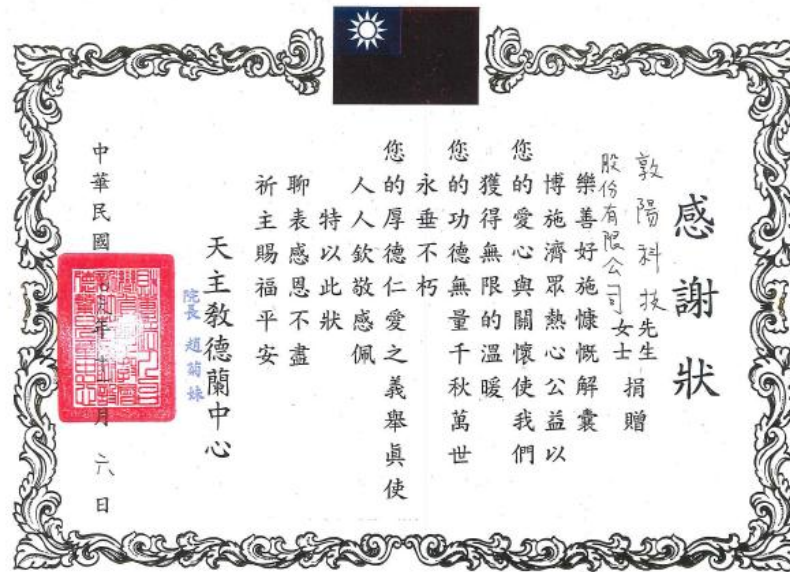 感謝狀
敦陽科技先生
股份有限公司女士
捐贈
樂善好施慷慨解囊
博施濟眾熱心公益以
您的愛心與關懷使我們
獲得無限的溫暖
您的功德無量千秋萬世
永垂不朽
您的厚德仁愛之義舉真使
人人欽敬感佩
特以此狀
聊表感恩不盡
祈主賜福平安
天主教德蘭中心
院長 趙蘭妹
中華民國 年 月 六 日